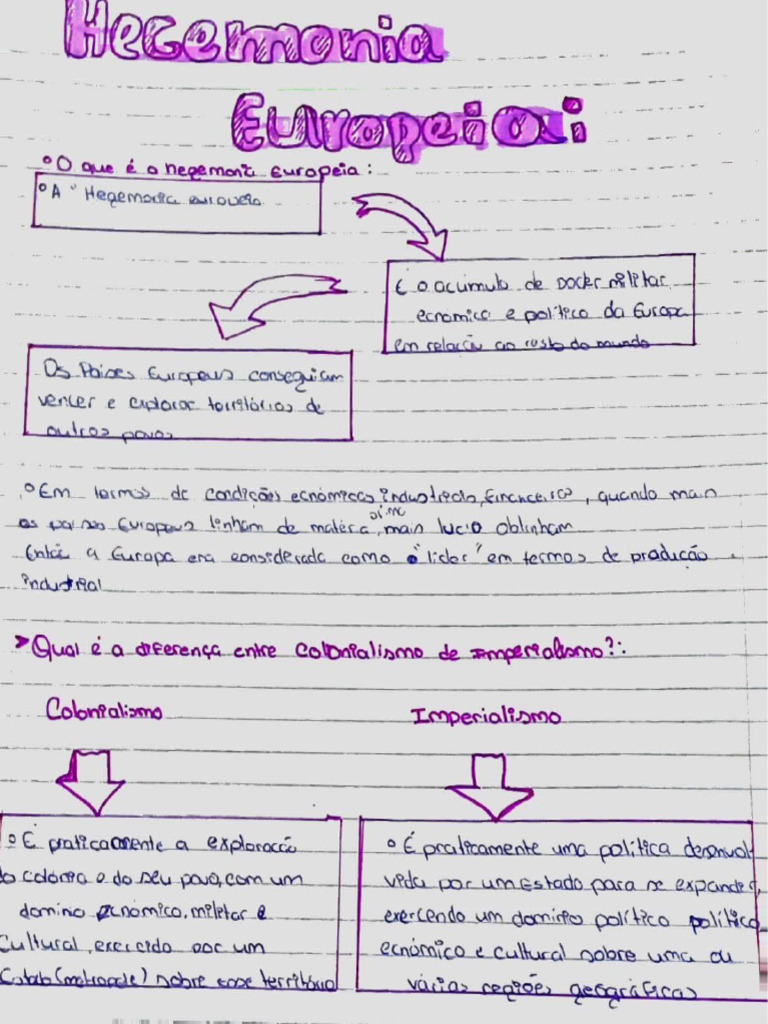 Hegemonia
Europeia:
°O que é o hegemonia Europeia:
°A "Hegemonia europeia
É o acúmulo de poder militar
ecnomico e político da Europa
em relação ao resto do mundo
Os Países Europeus conseguiam
vencer e explorar territórios de
outros povos
°Em termos de condições ecnómicas, industriais, financeiras, quando mais
os paises Europeus tinham de matéria, mais lucro obtinham
Então a Europa era considerada como o "lider" em termos de produção
industrial
➤Qual é a diferença entre Colonialismo de Imperialismo?:
Colonialismo
Imperialismo
°É praticamente a exploração
da colónia e do seu povo, com um
domínio ecnómico, militar e
cultural, exercido por um
Estado (metropole) sobre esse território
°É praticamente uma política desenvol
vida por um Estado para se expandir,
exercendo um domínio político política
ecnómico e cultural sobre uma ou
várias regiões geográficas